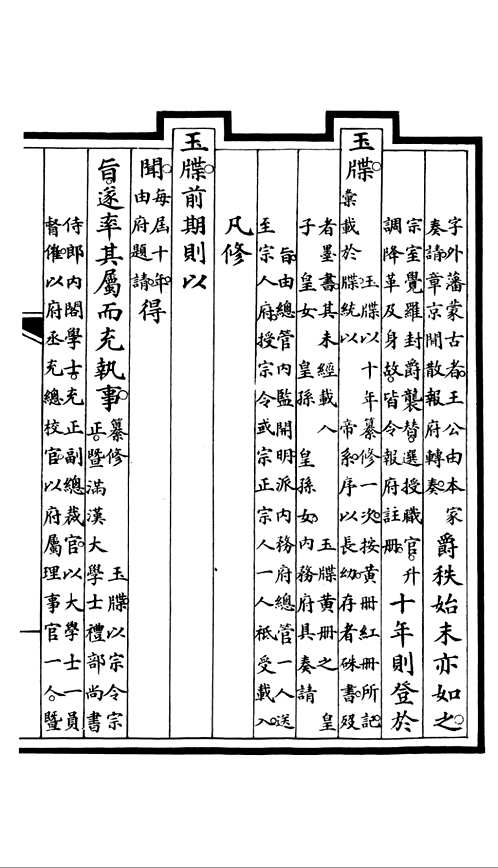 字外藩蒙古者王公由本家
奏請章京閒散報府轉奏
爵秩始末亦如之
宗室覺羅封爵襲替選授職官升
調降革及身故皆令報府註冊
十年則登於
玉牒
玉牒以十年纂修一次按黃冊紅冊所記
彙載於牒統以 帝系序以長幼存者硃書歿
者墨書其未經載入 玉牒黃冊之 皇
子 皇女 皇孫 皇孫女內務府具奏請
旨由總管內監開明派內務府總管一人送
至宗人府授宗令或宗正宗人一人祗受載入
凡修
玉牒前期則以
聞
每屆十年
由府題請
得
旨遂率其屬而充執事
纂修 玉牒以宗令宗
正暨滿漢大學士禮部尚書
侍郎內閣學士充正副總裁官以大學士一員
督催以府丞充總校官以府屬理事官一人暨